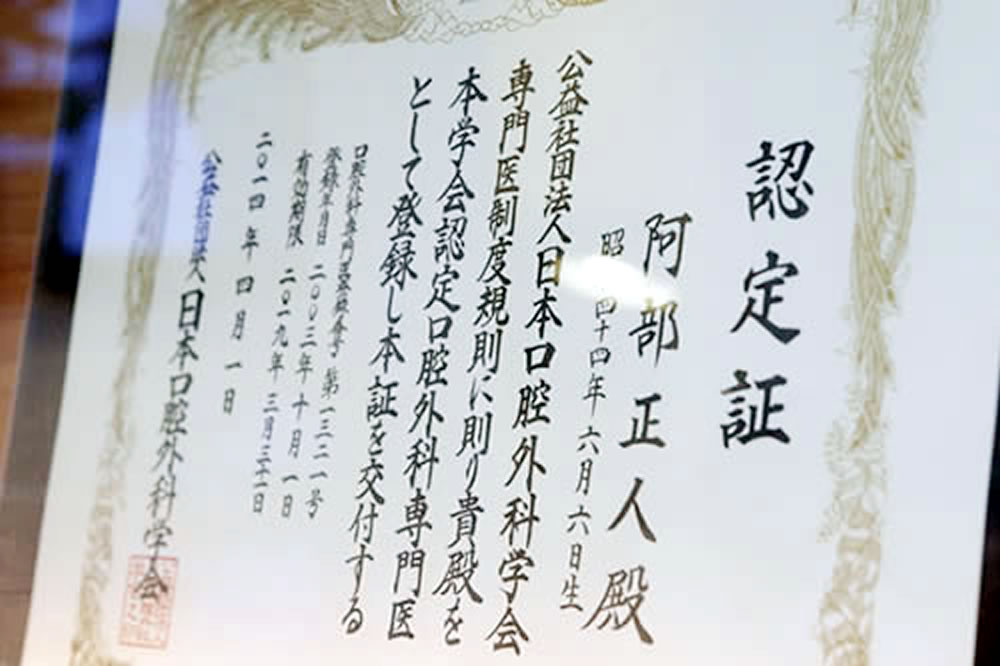 認定証
阿部正人殿
昭 四十四年 六月六日生
公益社団法人日本口腔外科学会
専門医制度規則に則り貴殿を
本学会認定口腔外科専門医
として登録し本証を交付する
口腔外科専門医登録番号 第一三二一号
登録年月日 二〇〇三年十月一日
有効期限 二〇一九年三月三十一日
二〇一四年四月一日
公益社団法人日本口腔外科学会